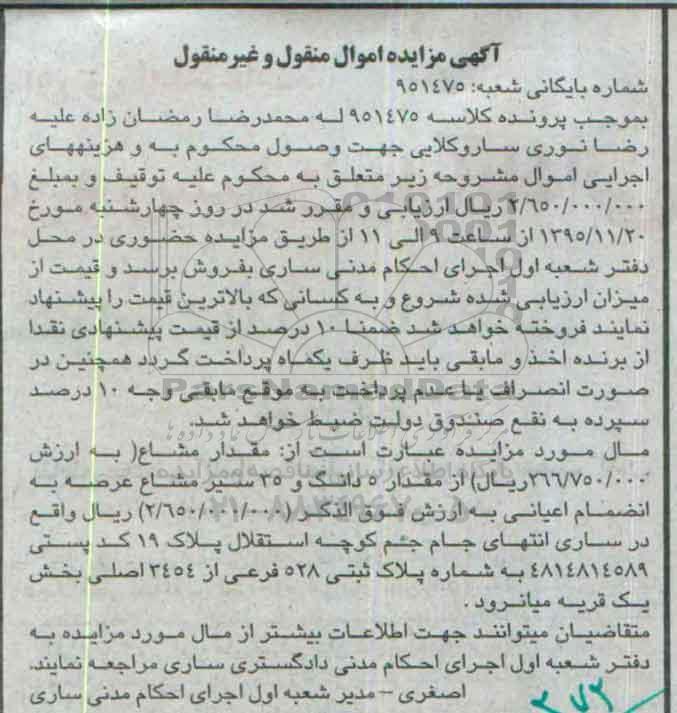 آگهی مزایده اموال منقول و غیر منقول
شماره بایگانی شعبه: ۹۵۱٤۷۵
بموجب پرونده کلاسه ۹۵۱٤۷۵ له محمدرضا رمضان زاده علیه
رضا نوری ساروکلایی جهت وصول محکوم به و هزینههای
اجرایی اموال مشروحه زیر متعلق به محکوم علیه توقیف و بمبلغ
۲/٦۵۰/۰۰۰/۰۰۰ ریال ارزیابی و مقرر شد در روز چهارشنبه مورخ
۱۳۹۵/۱۱/۲۰ از ساعت ۹ الی ۱۱ از طریق مزایده حضوری در محل
دفتر شعبه اول اجرای احکام مدنی ساری بفروش برسد و قیمت از
میزان ارزیابی شده شروع و به کسانی که بالاترین قیمت را پیشنهاد
نمایند فروخته خواهد شد ضمنا ۱۰ درصد از قیمت پیشنهادی نقدا
از برنده اخذ و مابقی باید ظرف یکماه پرداخت گردد همچنین در
صورت انصراف یا عدم پرداخت به موقع مابقی وجه ۱۰ درصد
سپرده به نفع صندوق دولت ضبط خواهد شد.
مال مورد مزایده عبارت است از: مقدار مشاع( به ارزش
۲٦٦/۷۵۰/۰۰۰ریال) از مقدار ۵ دانگ و ۳۵ سیر مشاع عرصه به
انضمام اعیانی به ارزش فوق الذکر (۲/٦۵۰/۰۰۰/۰۰۰) ریال واقع
در ساری انتهای جام جم کوچه استقلال پلاک ۱۹ کد پستی
٤۸۱٤۸۱٤۵۸۹ به شماره پلاک ثبتی ۵۲۸ فرعی از ۳٤۵٤ اصلی بخش
یک قریه میانرود .
متقاضیان میتوانند جهت اطلاعات بیشتر از مال مورد مزایده به
دفتر شعبه اول اجرای احکام مدنی دادگستری ساری مراجعه نمایند.
اصغری – مدیر شعبه اول اجرای احکام مدنی ساری
ParsNamadData